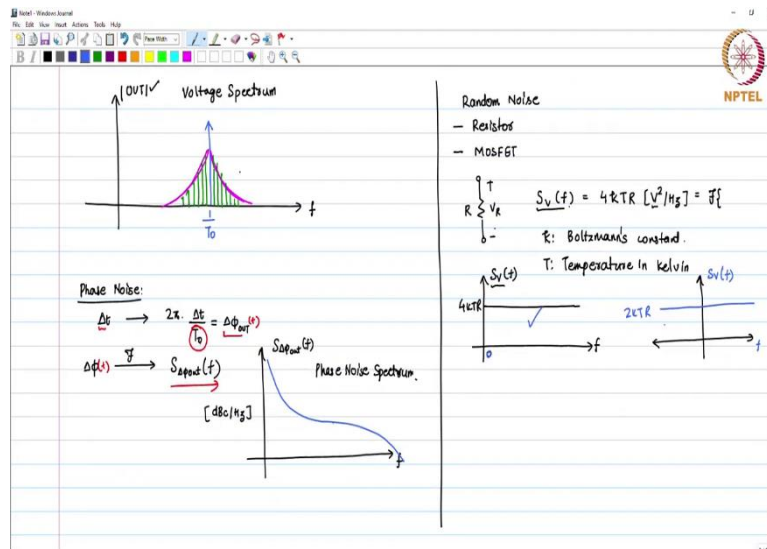 Note1 - Windows Journal
File Edit View Insert Actions Tools Help
Page Width
B I
NPTEL
|OUT|✓ Voltage Spectrum
f
1/T₀
Phase Noise:
Δt → 2π. Δt/T₀ = Δϕ_OUT(t)
Δϕ(t) → S_Δϕout(f)
S_Δϕout(f)
Phase Noise Spectrum.
[dBc/Hz]
f
Random Noise
- Resistor
- MOSFET
R T V_R -
S_V(f) = 4kTR [V²/Hz] = F{
k: Boltzmann's constant.
T: Temperature in kelvin
S_V(f)
4kTR
0
f
S_V(f)
2kTR
f